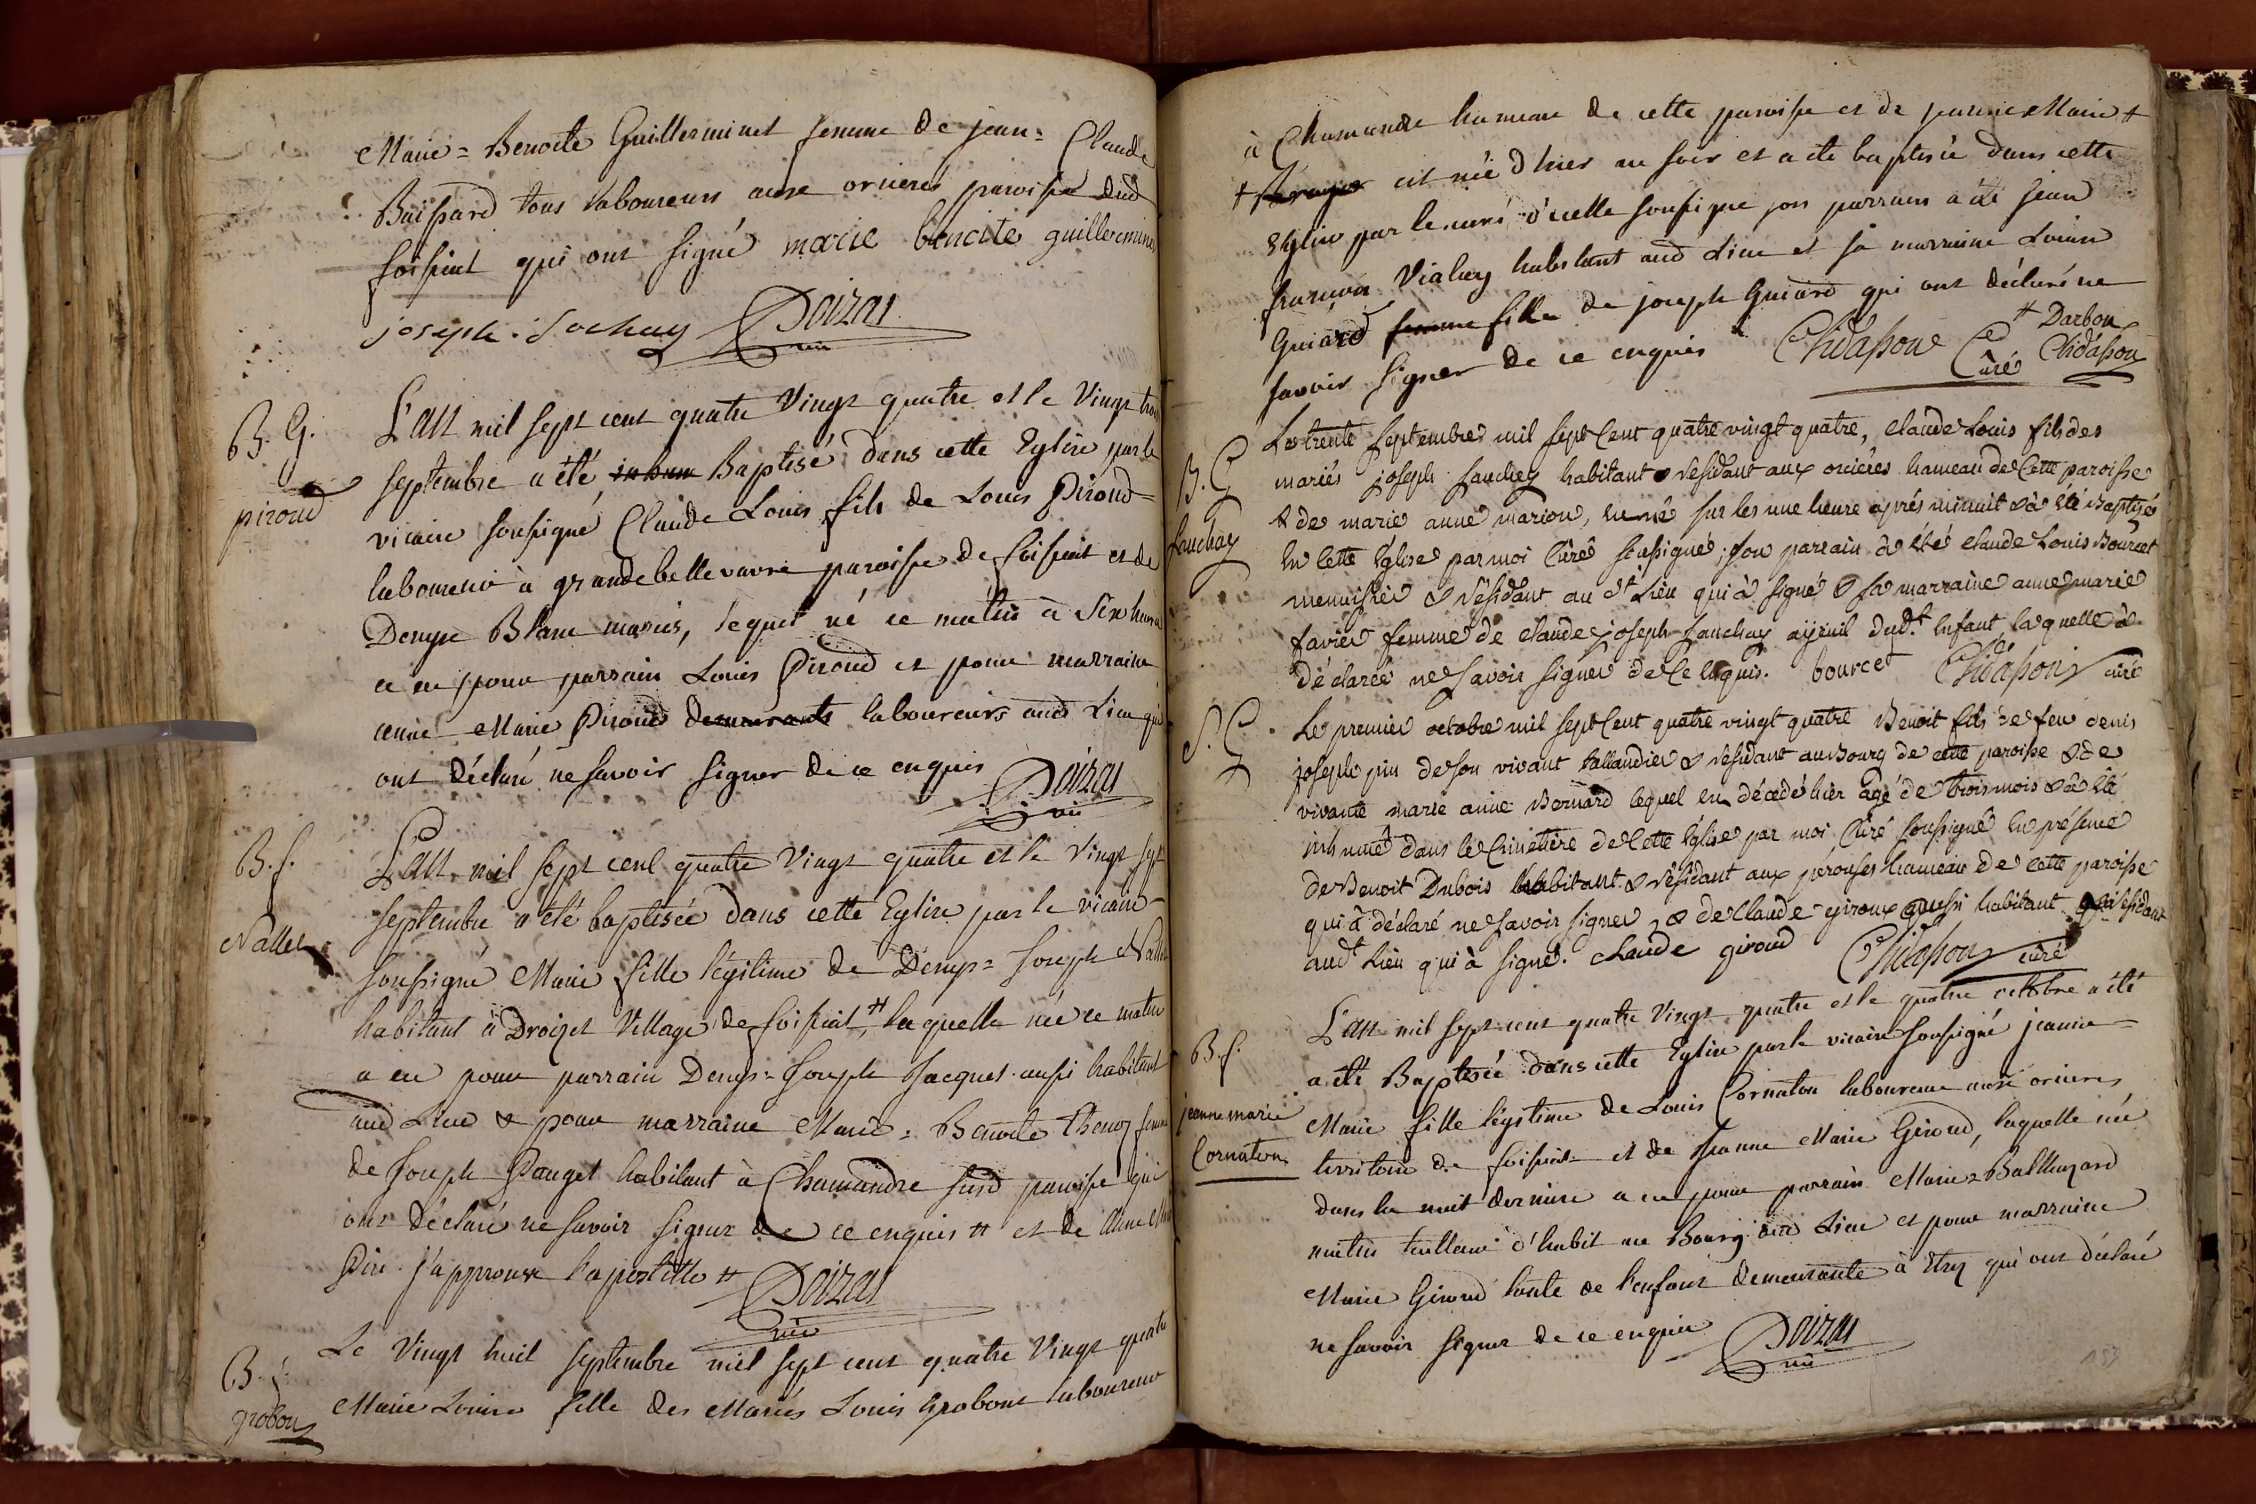 Marie = Benoite Guillerminet femme de jean = Claude
Buissard tous laboureurs aux orcieres paroisse dud
foissiat qui ont signé marie benoite guilleremine
joseph
Doizas
vic
B. G.
piroud
L'an mil sept cent quatre Vingt quatre et le Vingt trois
septembre a été inhum Baptisé dans cette Eglise par le
vicaire soussigné Claude Louis fils de Louis Piroud =
laboureur à grandebellevavre paroisse de foissiat et de
Denyse Blanc mariés, lequel né ce matin à Six heures
a eu pour parrain Louis Piroud et pour marraine
anne Marie Piroud demeurants laboureurs aud Lieu qui
ont déclaré ne savoir signer de ce enquis
Doizas
vic
B. f.
Nallet
L'an mil sept cent quatre Vingt quatre et le Vingt sept
septembre a été baptisée dans cette Eglise par le vicaire
soussigné Marie fille légitime de Denys = Joseph Nallet
habitant à Droizet Village de foissiat # laquelle née ce matin
a eu pour parrain Denys = Joseph Jacquet aussi habitant
aud Lieu & pour marraine Marie = Benoite Thenoz femme
de Joseph Pauget habitant à Chamandre susd paroisse qui
ont déclaré ne savoir signer de ce enquis # et de Anne
Piri j'approuve l'apostille #
Doizas
vic
B. f.
grobon
Le Vingt huit septembre mil sept cent quatre Vingt quatre
Marie Louise fille des Mariés Louis Grobont laboureur
à Chamandre hameau de cette paroisse et de jeanne Marie +
+ est née d'hier au soir et a été baptisée dans cette
Eglise par le curé d'icelle soussigné son parrain a été jean
francois Vialuy habitant aud Lieu et sa marraine Louise
Guiard femme fille de joseph Guiard qui ont déclaré ne
savoir signer de ce enquis Chidasson Curé
# Darbon
Chidasson
B. G
fauchay
Le trente septembre mil sept Cent quatre vingt quatre, claude Louis fils des
mariés joseph fauchey habitant & résidant aux orcières hameau de Cette paroisse
& de marie anne marion, en né sur les une heure après minuit & à été Baptisé
en Cette église par moi Curé soussigné; son parrain à été claude Louis Bourcet
menuisier & résidant au dt Lieu qui à signé & sa marraine anne marie
favier femme de claude joseph fauchay ayeuil dudt. enfant laquelle à
déclarée ne savoir signer de Ce enquis. bourcet Chidasson curé
S. G
Le premier octobre mil sept Cent quatre vingt quatre Benoit fils de feu denis
joseph pin de son vivant tallandier & résidant au Bourg de cette paroisse & de
vivante marie anne Bernard lequel en décédé hier Agé de trois mois & à été
inhumé dans le Cimetière de Cette église par moi Curé soussigné en présence
de Benoit Dubois habitant & résidant aux perouses hameau de cette paroisse
qui à déclaré ne savoir signer, & de claude giroux aussi habitant & résidant
audt Lieu qui à signé. claude giroud Chidasson curé
B. f.
jeanne marie
Cornaton
L'an mil sept cent quatre Vingt quatre et le quatre octobre a été
a été Baptisée dans cette Eglise par le vicaire soussigné jeanne =
Marie fille légitime de Louis Cornaton laboureur aux orcieres
territoire de foissiat et de Jeanne Marie Giroud, laquelle née
dans la nuit derniere a eu pour parrain Marie = Balthazard
mathis tailleur d'habit au Bourg aud Lieu et pour marraine
Marie Giroud tante de l'enfant demeurante à Etrez qui ont déclaré
ne savoir signer de ce enquis
Doizas
vic
157